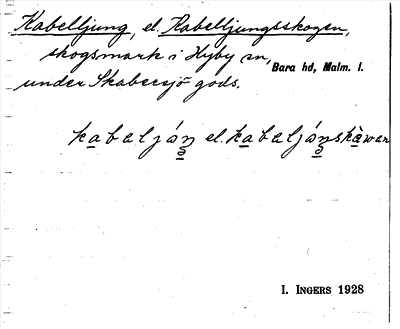 Kabelljung, el. Kabelljungsskogen,
skogsmark i Hyby sn, Bara hd, Malm. l.
under Skabersjö gods.
kabaljáŋ el. kabaljáŋskàwan
I. INGERS 1928